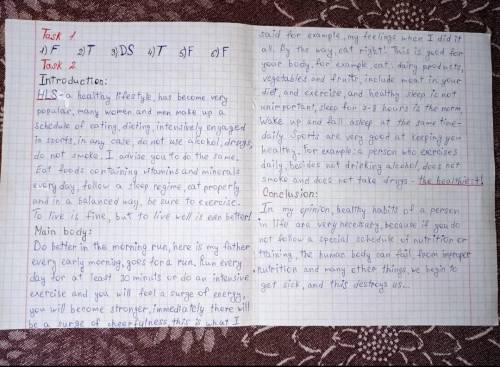 Task 1
1) F 2) T 3) DS 4) T 5) F 6) F
Task 2
Introduction:
HLS - a healthy lifestyle, has become very
popular, many women and men make up a
schedule of eating, dieting, intensively engaged
in sports, in any case, do not use alcohol, drugs,
do not smoke. I advise you to do the same.
Eat foods containing vitamins and minerals
every day, follow a sleep regime, eat properly
and in a balanced way, be sure to exercise.
To live is fine, but to live well is even better!
Main body:
Do better in the morning run, here is my father
every early morning, goes for a run. Run every
day for at least 30 minuts or do an intensive
exercise and you will feel a surge of energy,
you will become stronger, immediately there will
be a surge of cheerfulness, this is what I
said for example, my feelings when I did it
all. By the way, eat right! This is good for
your body, for example, eat: dairy products,
vegetables and fruits, include meat in your
diet, and exercise, and healthy sleep is not
unimportant, sleep for 7-8 hours is the norm.
Wake up and fall asleep at the same time-
daily. Sports are very good at keeping you
healthy. For example: a person who exercises
daily, besides not drinking alcohol, does not
smoke and does not take drugs - the healthiest!
Conclusion:
In my opinion, healthy habits of a person
in life are very necessary, because if you do
not follow a special schedule of nutrition or
training, the human body can fail, from improper
nutrition and many other things, we begin to
get sick, and this destroys us...